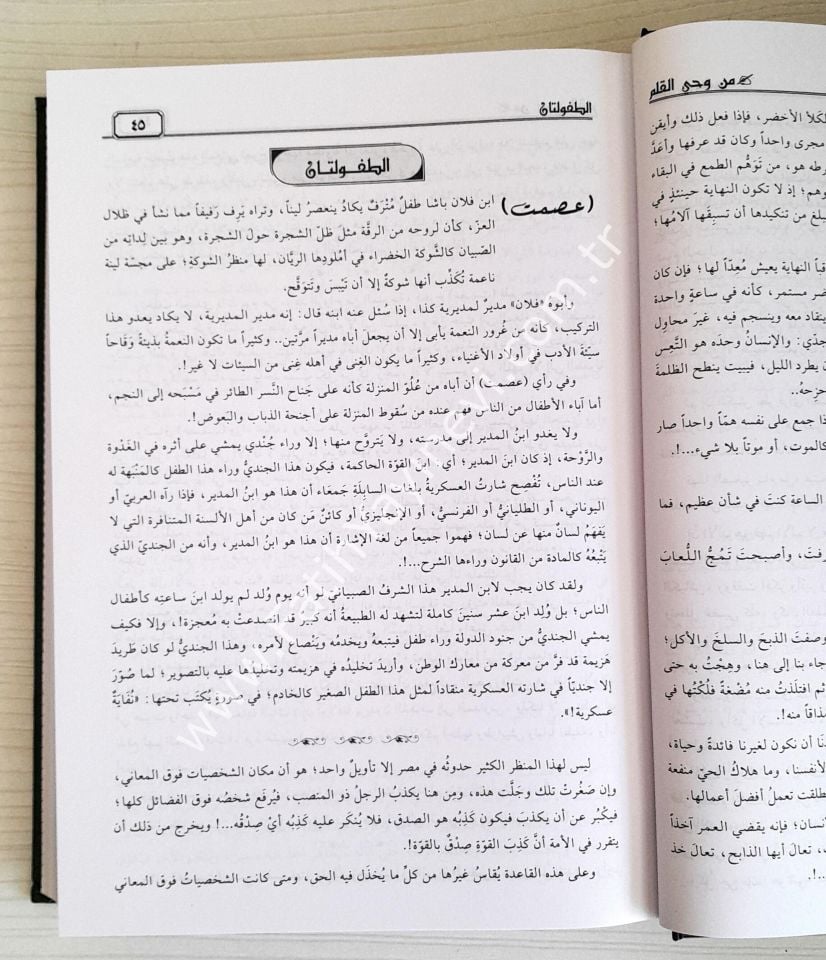 من وحي القلم
لكلأ الأخضر، فإذا فعل ذلك وأيقن
مجرى واحداً وكان قد عرفها وأعدَّ
رطه هو، من تَوَهُّم الطمع في البقاء
وهم؛ إذ لا تكون النهاية حينئذٍ في
يبلغ من تنكيدها أن تسبِقَها آلامُها؛
قباً النهاية يعيش مُعِدّاً لها؛ فإن كان
ضر مستمر، كأنه في ساعةٍ واحدة
ينقاد معه وينسجم فيه، غيرَ محاول
جذي: والإنسانُ وحدَه هو التَّعِس
ن يطرد الليل، فيبيت ينطح الظلمةَ
حزِحهُ..
ذا جمع على نفسه همّاً واحداً صار
كالموت، أو موتاً بلا شيء...!.
الساعة كنتَ في شأن عظيم، فما
رفتَ، وأصبحتَ تَمجُّ اللُّعابَ
وصفتَ الذبحَ والسلخَ والأكل؛
جاء بنا إلى هنا، وهِجْتُ به حتى
ثم افتلَذتُ منه مُضْغةً فلُكْتُها في
مذاقاً منه!.
نَا أن نكون لغيرنا فائدةً وحياة،
لأنفسنا، وما هلاكُ الحيِّ منفعة
طلقت تعملُ أفضلَ أعمالها.
نسان؛ فإنه يقضي العمر آخذاً
، تعالَ أيها الذابح، تعالَ خذ
...!.
الطفولتان
٤٥
الطفولتان
(عصمت) ابن فلان باشا طفلٌ مُتْرَفٌ يكادُ ينعصرُ ليناً، وتراه يَرِف رَفيفاً مما نشأ في ظلال
العزِّ، كأن لروحه من الرقَّة مثلَ ظلِّ الشجرة حولَ الشجرة، وهو بين لِداتِه من
الصِّبيان كالشوكة الخضراء في أُملودِها الريَّان، لها منظرُ الشوكةِ؛ على مجسَّة لينة
ناعمة تُكذِّب أنها شوكةٌ إلا أن تَيْبسَ وتَتوقَّح.
وأبوه «فلان» مديرٌ لمديرية كذا، إذا سُئل عنه ابنه قال: إنه مدير المديرية، لا يكاد يعدو هذا
التركيب، كأنه من غُرور النعمة يأبى إلا أن يجعل أباه مديراً مرَّتين.. وكثيراً ما تكون النعمةُ بذيئةً وَقَاحاً
سيِّئةَ الأدب في أولاد الأغنياء، وكثيراً ما يكون الغِنى في أهله غِنى من السيئات لا غير!.
وفي رأي (عصمت) أن أباه من عُلوِّ المنزلة كأنه على جَناح النَّسر الطائر في مَسْبَحه إلى النجم،
أما آباء الأطفال من الناس فهم عنده من سُقوط المنزلة على أجنحة الذباب والبَعوض!.
ولا يغدو ابنُ المدير إلى مدرسته، ولا يَتروَّح منها؛ إلا وراء جُندي يمشي على أثره في الغَدْوة
والرَّوْحة، إذ كان ابنَ المدير؛ أي: ابنَ القوّة الحاكمة، فيكون هذا الجنديُّ وراء هذا الطفل كالمَنْبَهة له
عند الناس، تُفْصِح شارتُ العسكريةُ بلغات السابِلةِ جَمعَاء أن هذا هو ابنُ المدير، فإذا رآه العربيّ أو
اليوناني، أو الطليانيُّ أو الفرنسيُّ، أو الإنجليزيُّ أو كائنٌ مَن كان من أهل الألسنة المتنافرة التي لا
يَفهَمُ لسانٌ منها عن لسان؛ فهموا جميعاً من لغة الإشارة أن هذا هو ابنُ المدير، وأنه من الجنديّ الذي
يَتْبعُهُ كالمادة من القانون وراءها الشرح...!.
ولقد كان يجب لابن المدير هذا الشرفُ الصبيانيّ لو أنه يوم وُلد لم يولد ابنَ ساعتِه كأطفال
الناس؛ بل وُلِد ابنَ عشر سنينَ كاملة لتشهد له الطبيعةُ أنه كبيرٌ قد انصدعتْ به معجزة!، وإلا فكيف
يمشي الجنديُّ من جنود الدولة وراء طفل فيتبعهُ ويخدمُه ويَنْصاع لأمره، وهذا الجنديُّ لو كان طَريدَ
هَزيمة قد فرَّ من معركة من معارك الوطن، وأريدَ تخليدُه في هزيمته وتخليدُها عليه بالتصوير؛ لما صُوِّرَ
إلا جندياً في شارته العسكرية منقاداً لمثل هذا الطفل الصغير كالخادم؛ في صورةٍ يُكتَب تحتها: «نُفَايَةٌ
عسكرية!».
ليس لهذا المنظر الكثير حدوثُه في مصر إلا تأويلٌ واحد؛ هو أن مكان الشخصيات فوق المعاني،
وإن صَغُرتْ تلك وجَلَّت هذه، ومِن هنا يكذبُ الرجلُ ذو المنصب، فيُرفَع شخصُه فوق الفضائل كلها؛
فيكْبُر عن أن يكذبَ فيكون كَذِبُه هو الصدق، فلا يُنكَر عليه كَذِبُه أيْ صِدْقُه...! ويخرج من ذلك أن
يتقرر في الأمة أنَّ كَذِبَ القوّةِ صِدْقٌ بالقوّة!.
وعلى هذه القاعدة يُقاسُ غيرُها من كلِّ ما يُخذَل فيه الحق، ومتى كانت الشخصياتُ فوق المعاني